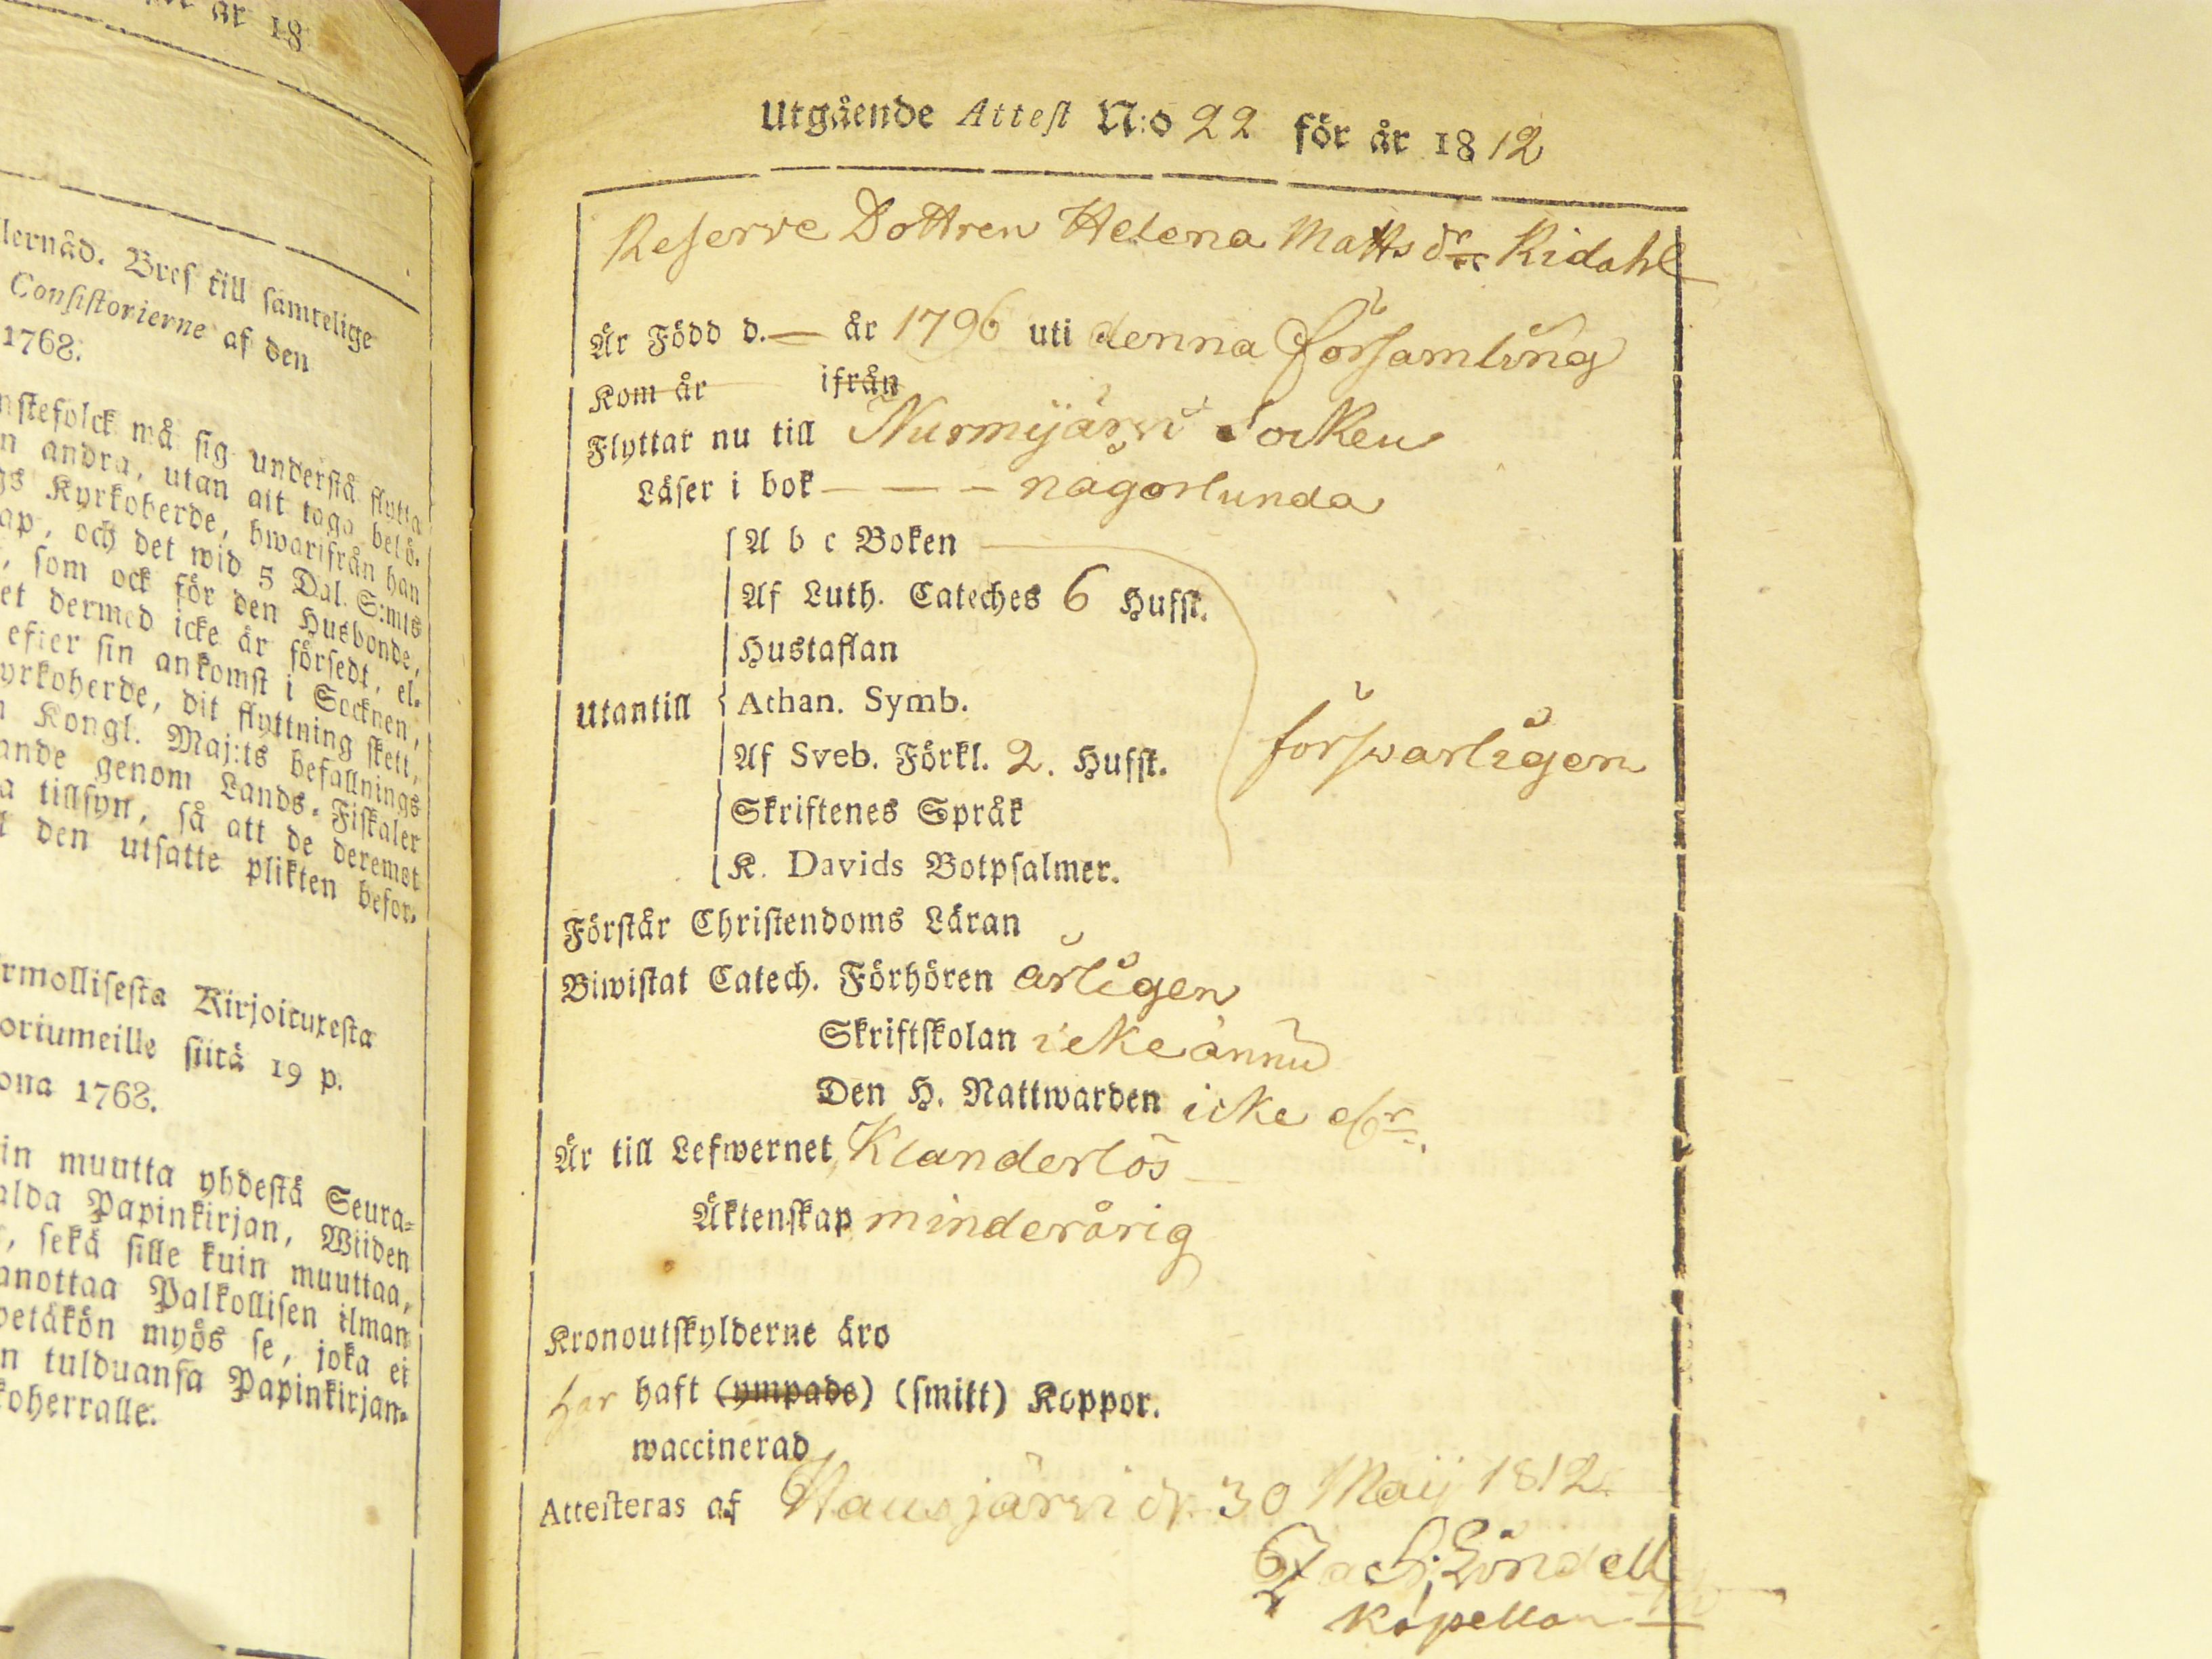 år 18
lernåd. Bref till samtelige
Consistorierne af den
1768.
nstefolck må sig understå flytta
n andra, utan att taga betö-
gs Kyrkoherde, hwarifrån han
ap, och det wid 5 Dal. S:mts
, som ock för den Husbonde,
et dermed icke är försedt, el-
efter sin ankomst i Socknen,
yrkoherde, dit flyttning skett,
n Kongl. Maj:ts befallnings
ande genom Lands-Fiskaler
a tillsyn, så att de deremot
l den utsatte plikten befor-
rmollisesta Kirjoituxesta
oriumeille siitä 19 p.
ona 1768.
in muutta yhdestä Seura-
alda Papinkirjan, Wiiden
, sekä sille kuin muuttaa,
anottaa Palkollisen ilman
petäkön myös se, joka ei
n tulduansa Papinkirjan-
koherralle.
Utgående Attest N:o 22 för år 1812
Reserve Dottren Helena Mattsdr Ridahl
Är Född d. — år 1796 uti denna Församling
Kom år ifrån
Flyttar nu till Nurmijärvi Socken
Läser i bok — — — någorlunda
A b c Boken
Af Luth. Cateches 6 Hufst.
Hustaflan
Utantill Athan. Symb.
Af Sveb. Förkl. 2. Hufst. försvarligen
Skriftenes Språk
K. Davids Botpsalmer.
Förstår Christendoms Läran
Biwistat Catech. Förhören årligen
Skriftskolan icke ännu
Den H. Nattwarden icke
Är till Lefwernet Klanderlös
Äktenskap minderårig
Kronoutskylderne äro
har haft (ympade) (smitt) Koppor.
waccinerad
Attesteras af Hausjärvi d. 30 Maij 1812
Zach: Lindell
Kapellan